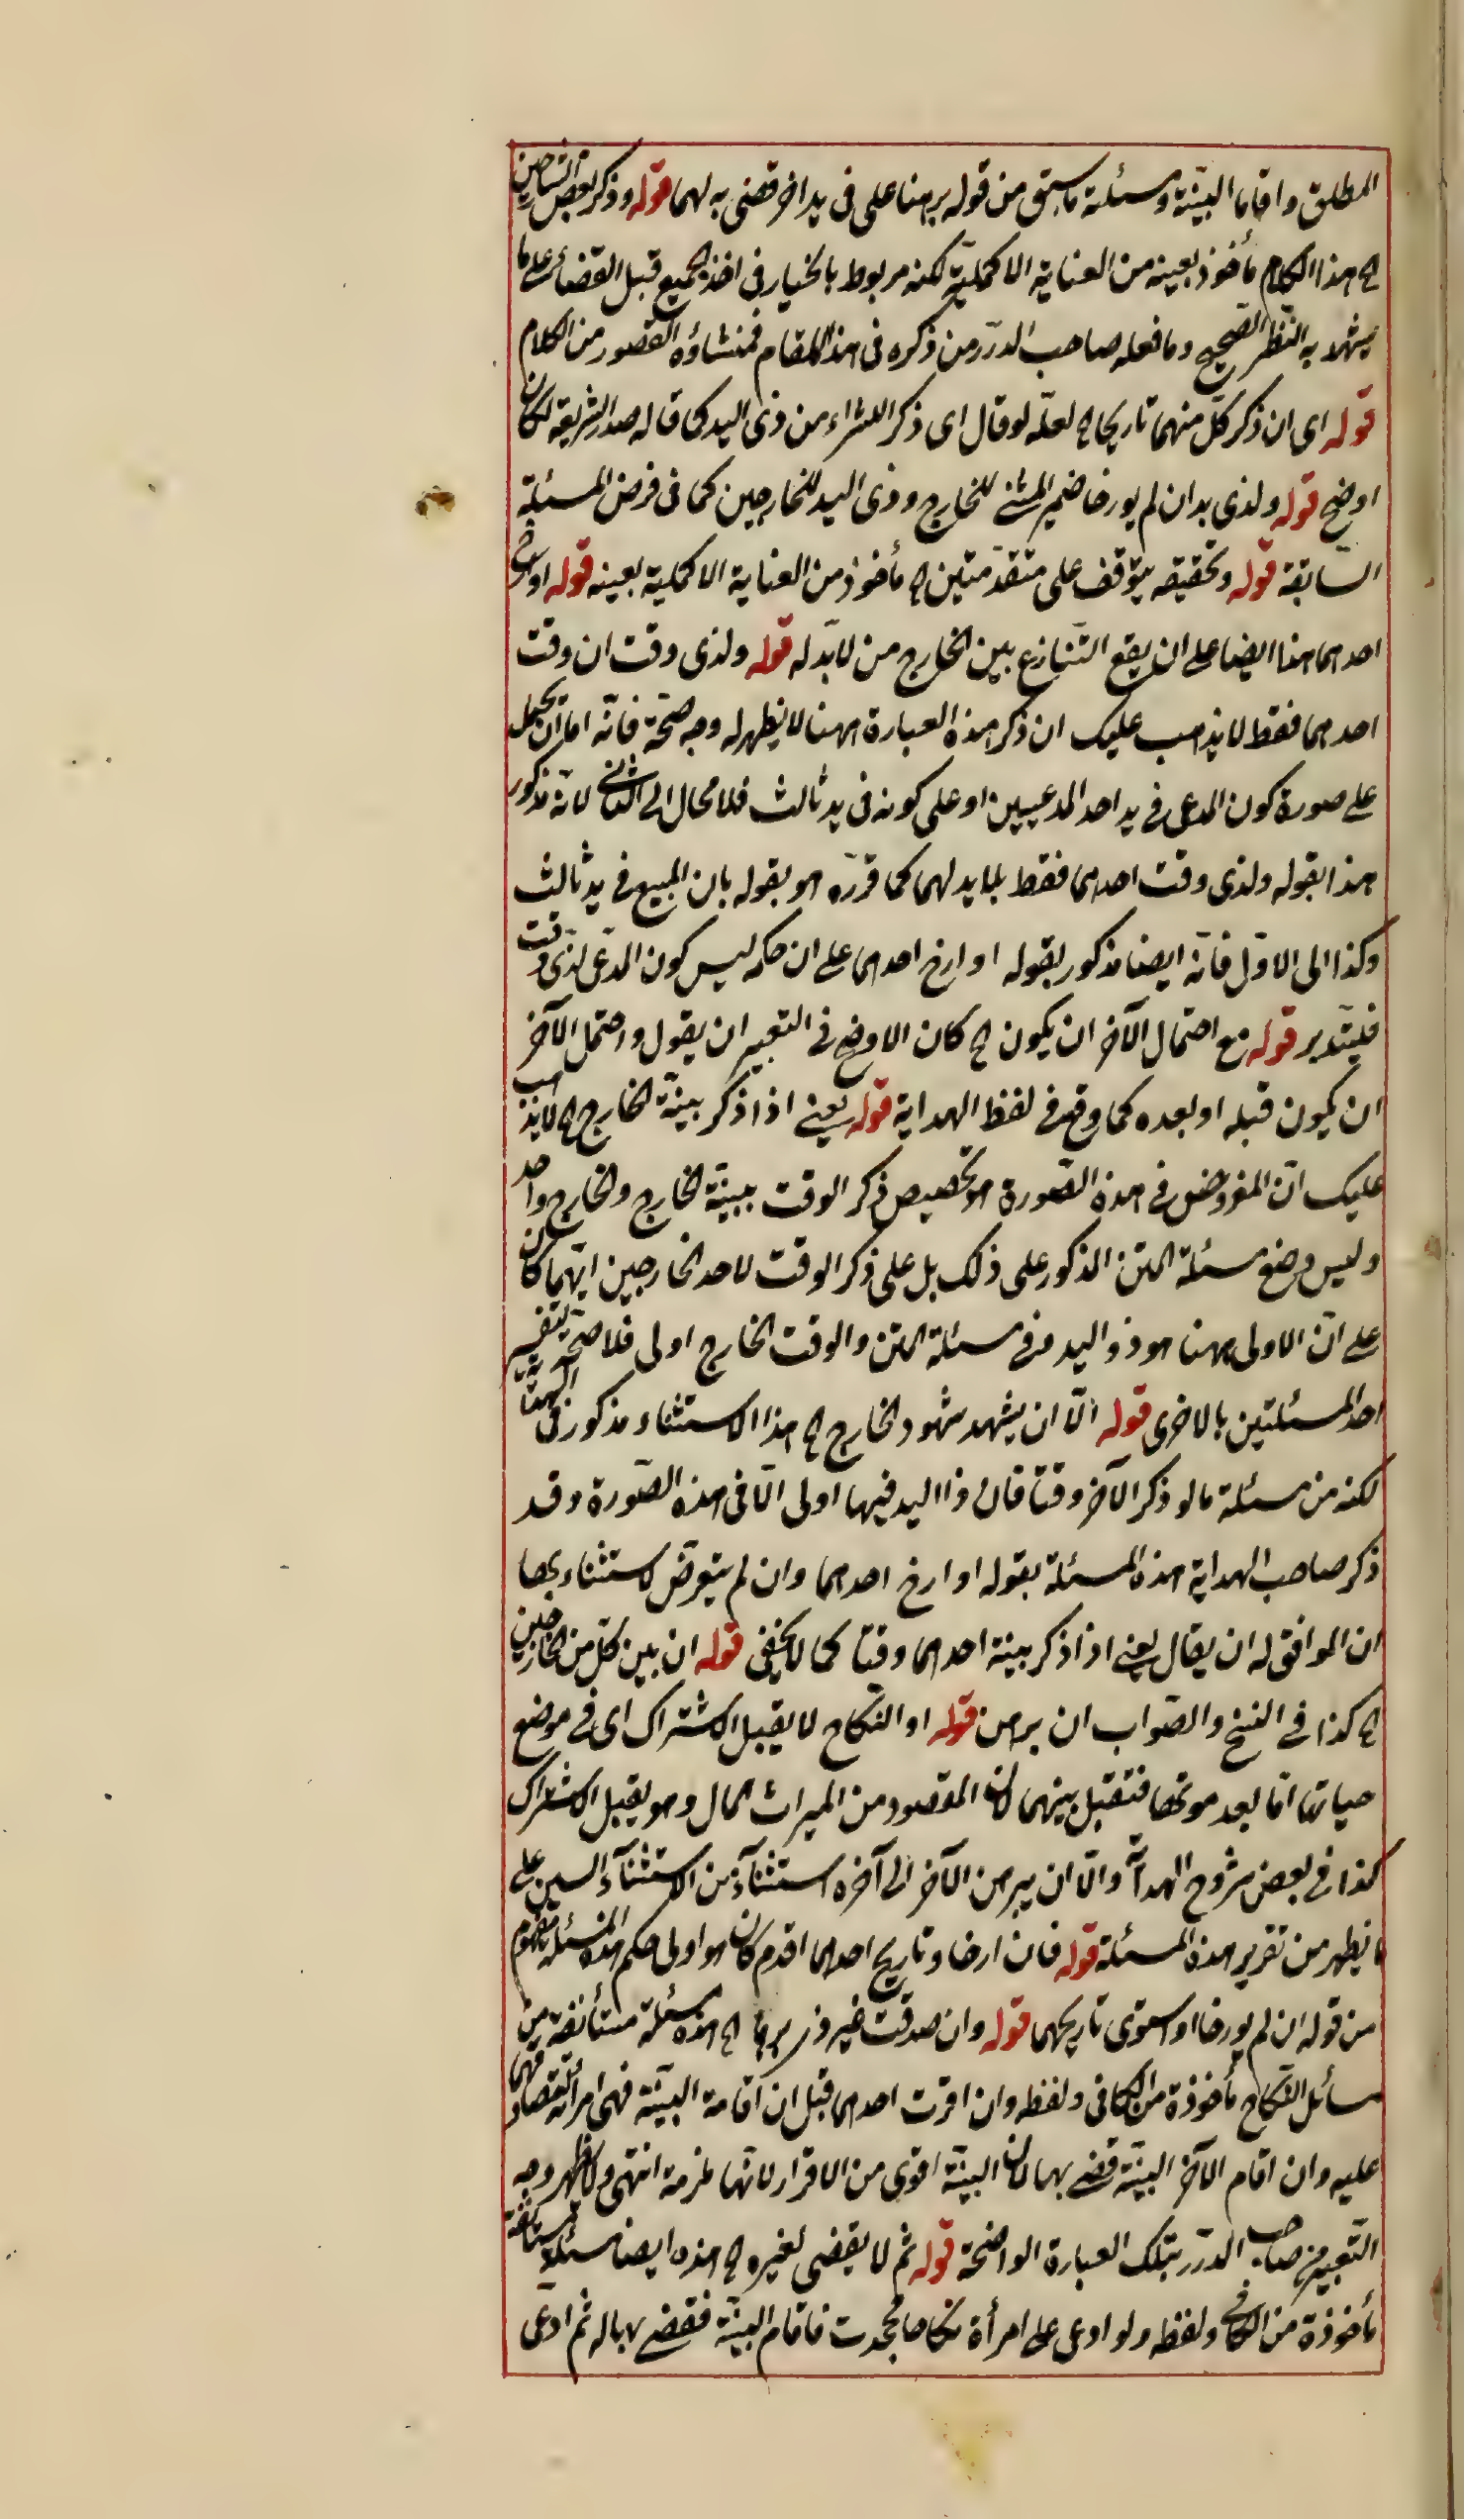 المطلق واقاما البيّنة ومسئلة ما سبق من قوله برهنا على فى يد اخر قضى به لهما قوله وذكر بعض الشارحين
اه هذا الكلام مأخوذ بعينه من العناية الاكمليّة لكنه مربوط بالخيار فى اخذ الجميع قبل القضاء على ما
يشهد به النّظر الصّحيح وما فعله صاحب الدّرر من ذكره فى هذا المقام فمنشاؤه القصور من الكلام
قوله اى ان ذكر كلّ منهما تاريخا اه لعلّه لو قال اى ذكر الشراء من ذى اليد كما قاله صدر الشريعة لكان
اوضح قوله ولذى يد ان لم يورخا ضمير المثنى للخارج وذى اليد لا للخارجين كما فى فرض المسئلة
السّابقة قوله وتحقيقه يتوقف على متقدّمتين اه مأخوذ من العناية الاكملية بعينه قوله او ارخ
احدهما هذا ايضا على ان يقع التّنازع بين الخارج من لا يد له قوله ولذى وقت ان وقت
احدهما فقط لا يذهب عليك ان ذكر هذه العبارة ههنا لا يظهر له وجه صحّة فانّه اما ان يحمل
على صورة كون المدعى فى يد احد المدعيين او على كونه فى يد ثالث فلا محال الى الثانى لانّه مذكور
هذا بقوله ولذى وقت احدهما فقط بلا يد لهما كما قرّره هو بقوله بان المبيع فى يد ثالث
وكذا الى الاوّل فانّه ايضا مذكور بقوله او ارخ احدهما على ان حكمه ليس كون المدّعى لذى وقت
فليتدبر قوله مع احتمال الآخر ان يكون اه كان الاوضح فى التعبير ان يقول واحتمل الآخر
ان يكون قبله او بعده كما وقع فى لفظ الهداية قوله يعنى اذا ذكر بينّة الخارج اه لا يذهب
عليك انّ المفروض فى هذه الصّورة هو تخصيص ذكر الوقت ببينّة الخارج والخارج واحد
وليس وضع مسئلة المتن المذكور على ذلك بل على ذكر الوقت لاحد الخارجين ايّهما كان
على انّ الاولى ههنا هو ذو اليد وفى مسئلة المتن والوقت الخارج اولى فلا صحّة لتفسير
احد المسئلتين بالاخرى قوله الّا ان يشهد شهود الخارج اه هذا الاستثناء مذكور فى الهداية
لكنه من مسئلة ما لو ذكر الآخر وقتا فان ذا اليد فيها اولى الّا فى هذه الصّورة وقد
ذكر صاحب الهداية هذه المسئلة بقوله او ارخ احدهما وان لم يتعرّض لاستثناء بها
ان الموافق له ان يقال يعنى اذا ذكر بينة احدهما وقتا كما لا يخفى قوله ان بين كلّ من الخارجين
اه كذا فى النسخ والصّواب ان برهن قوله او النّكاح لا يقبل الاشتراك اى فى موضع
حياتها امّا بعد موتها فتقبل بينهما لان المقصود من الميراث المال وهو يقبل الاشتراك
كذا فى بعض شروح الهداية والّا ان يبرهن الآخر الى آخره استثنآء من الاستثنآء السين على
ما يظهر من تقرير هذه المسئلة قوله فان ارخا وتاريخ احدهما اقدم كان هو اولى حكم هذه المسئلة مفهوم
من قوله ان لم يورخا او استوى تاريخهما قوله وان صدقت غير ذى برهان اه هذه مسئلة مستأنفة من
مسائل النّكاح مأخوذة من الكافى ولفظه وان اقرت احدهما قبل ان اقامة البيّنة فهى امرأته لتصادقهما
عليه وان اقام الآخر البيّنة قضى بها لان البيّنة اقوى من الاقرار لانّها ملزمة انتهى ولا يظهر وجه
التّعبير من صاحب الدّرر بتلك العبارة الواضحة قوله ثم لا يقضى لغيره اه هذه ايضا مسئلة مستأنفة
مأخوذة من الكافى ولفظه ولو ادعى على امرأة نكاحا فجحدت فاقام البيّنة فقضى بها له ثم ادعى